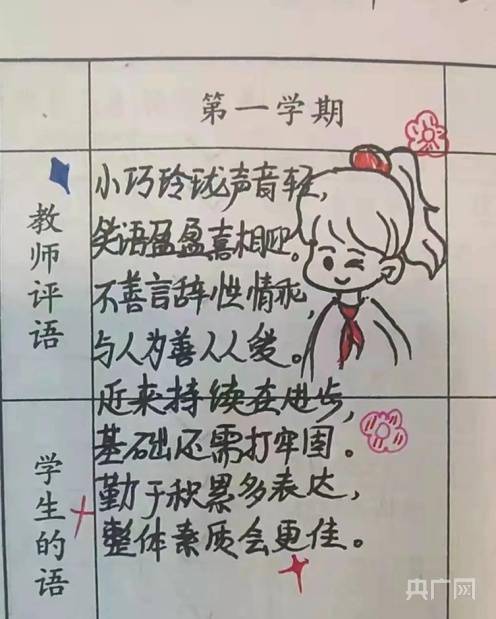 第一学期
教师评语
小巧玲珑声音轻，
笑语盈盈喜相迎。
不善言辞性情乖，
与人为善人人爱。
近来持续在进步，
基础还需打牢固。
勤于积累多表达，
整体素质会更佳。
学生的话
央广网